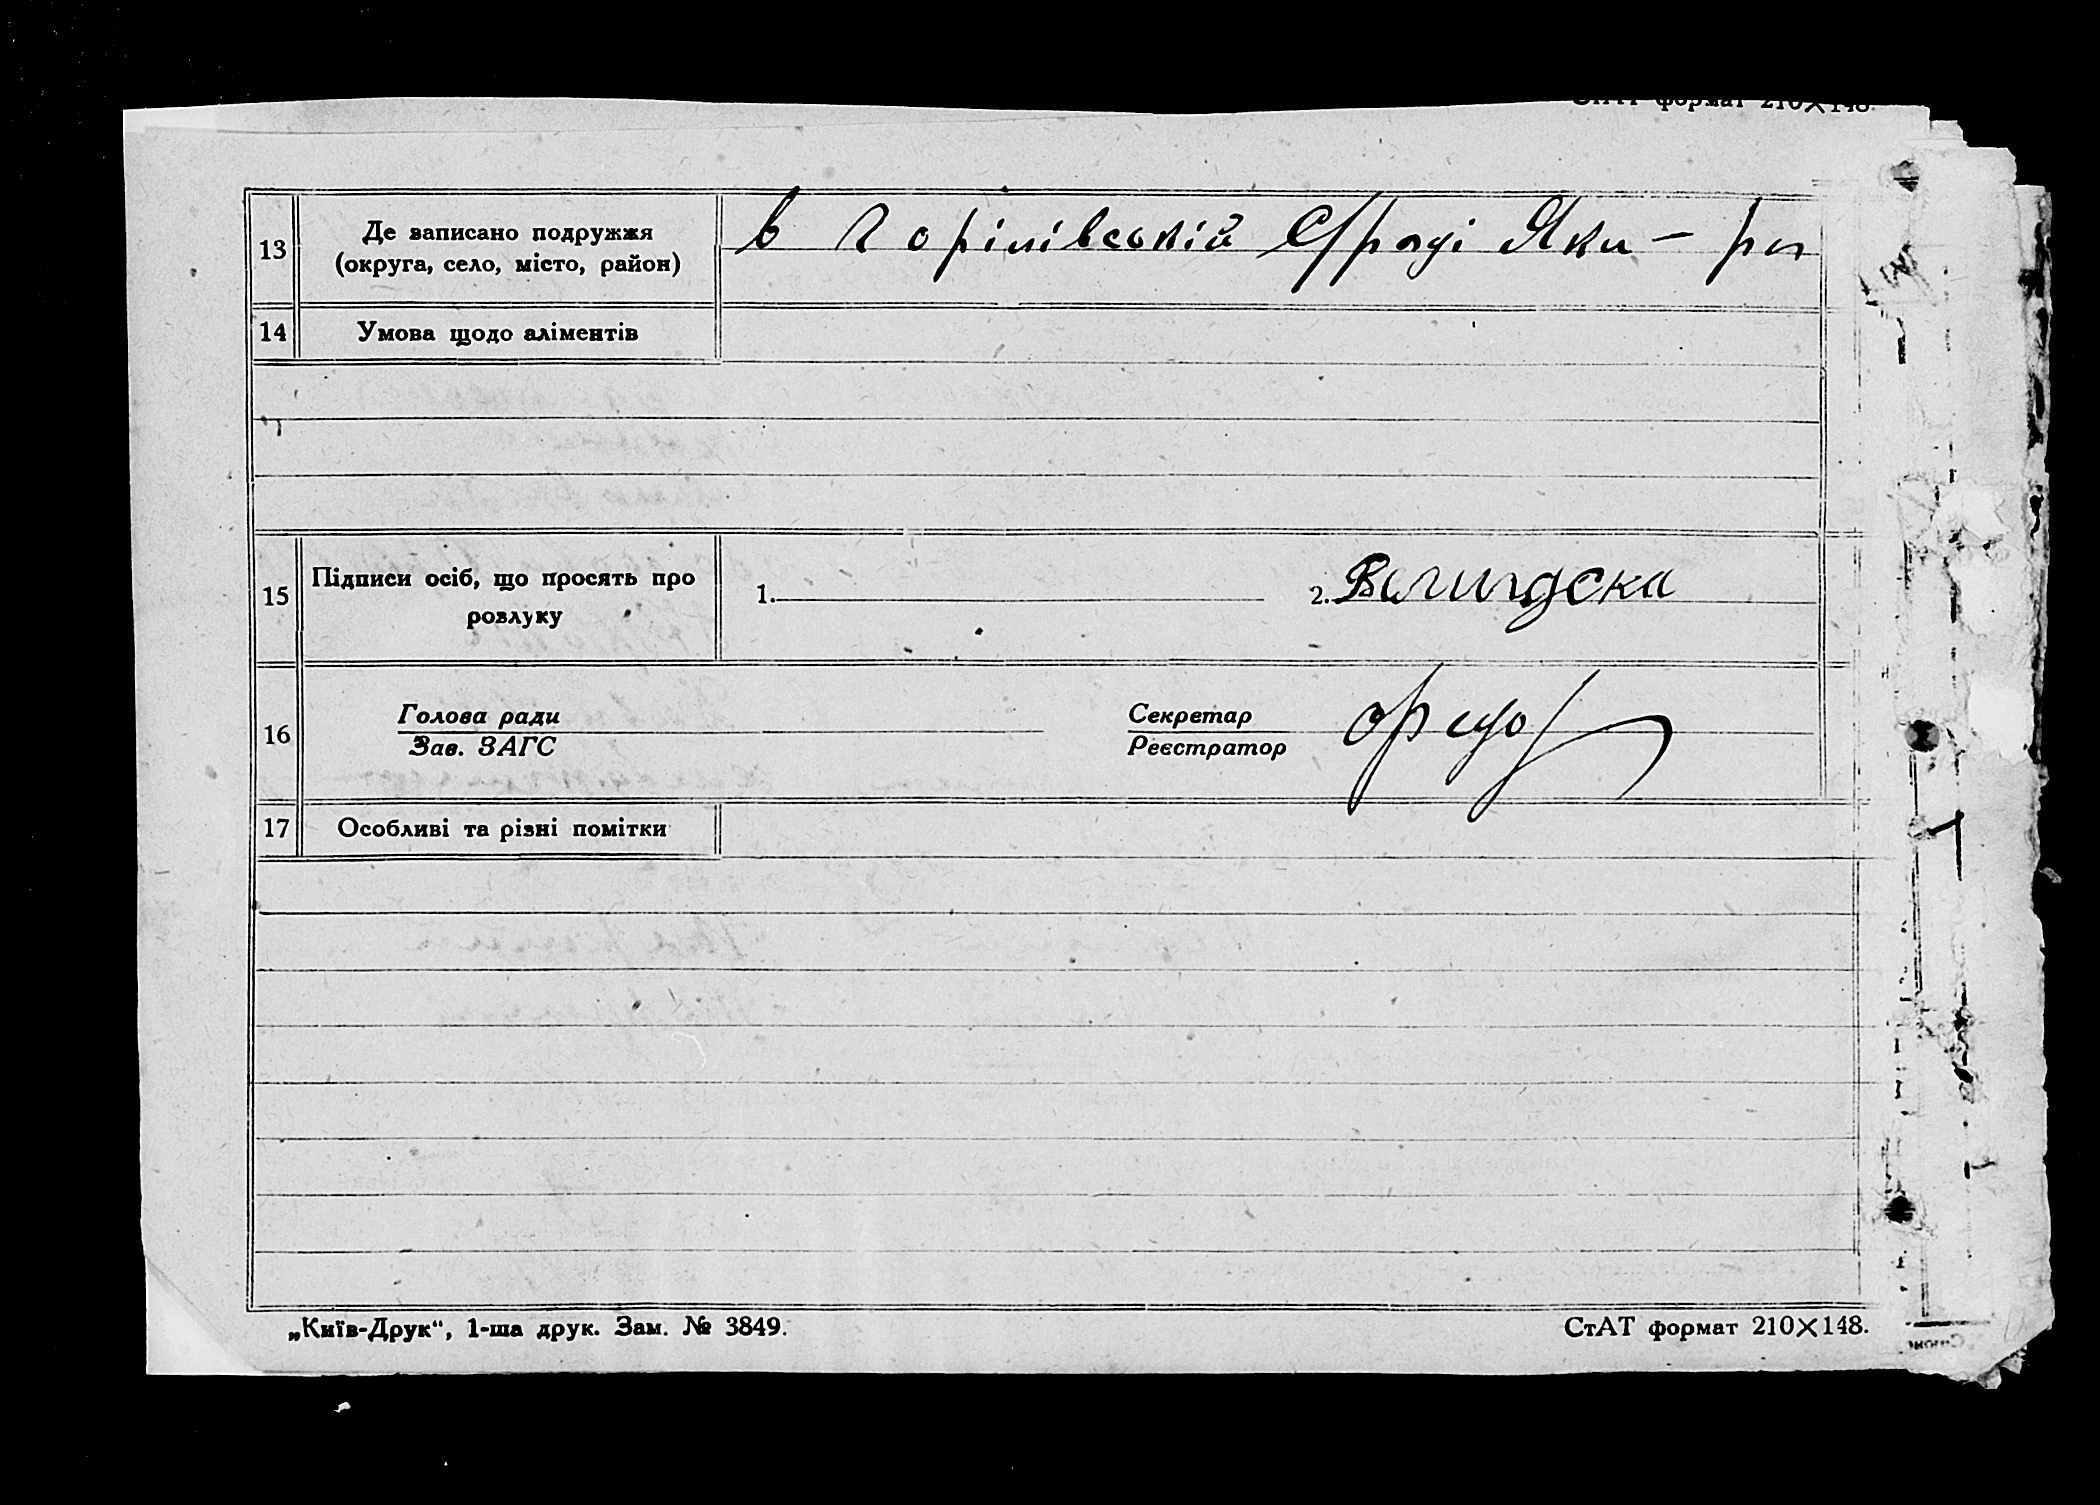 СтАТ формат 210×148.
13
Де записано подружжя
(округа, село, місто, район)
в
14
Умова щодо аліментів
15
Підписи осіб, що просять про
розлуку
1.
2.
16
Голова ради
Зав. ЗАГС
Секретар
Реєстратор
17
Особливі та різні помітки
„Київ-Друк“, 1-ша друк. Зам. № 3849.
СтАТ формат 210×148.